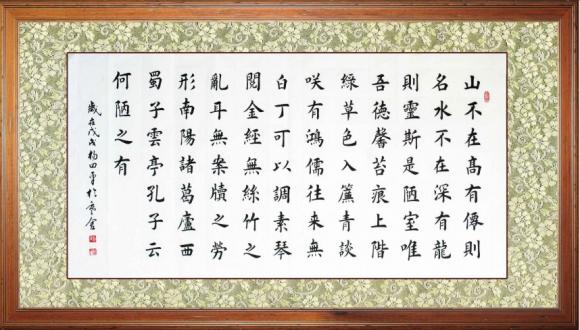 山不在高有僊則
名水不在深有龍
則靈斯是陋室唯
吾德馨苔痕上階
綠草色入簾青談
咲有鴻儒往来無
白丁可以調素琴
閱金經無絲竹之
亂耳無案牘之勞
形南陽諸葛廬西
蜀子雲亭孔子云
何陋之有
歲在戊戌楊四於